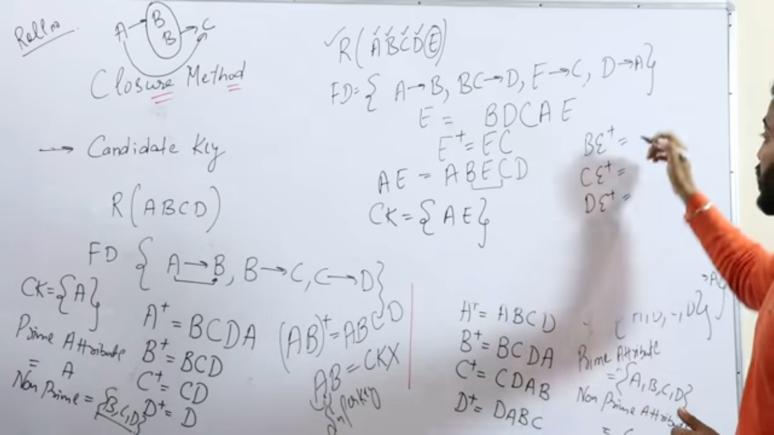 Roll no
A → B
B → C
Closure Method
→ Candidate Key
R(ABCD)
FD { A→B, B→C, C→D}
CK={A}
Prime Attribute
= A
Non Prime = {B,C,D}
A⁺ = BCDA
B⁺ = BCD
C⁺ = CD
D⁺ = D
(AB)⁺ = ABCD
AB = CKX
✓R(ABCDE)
FD={ A→B, BC→D, E→C, D→A}
E = BDCAE
E⁺ = EC
AE = ABECD
CK = {AE}
BE⁺ =
CE⁺ =
DE⁺ =
A⁺ = ABCD
B⁺ = BCDA
C⁺ = CDAB
D⁺ = DABC
→A}
Prime Attribute
= {A,B,C,D}
Non Prime Attribut